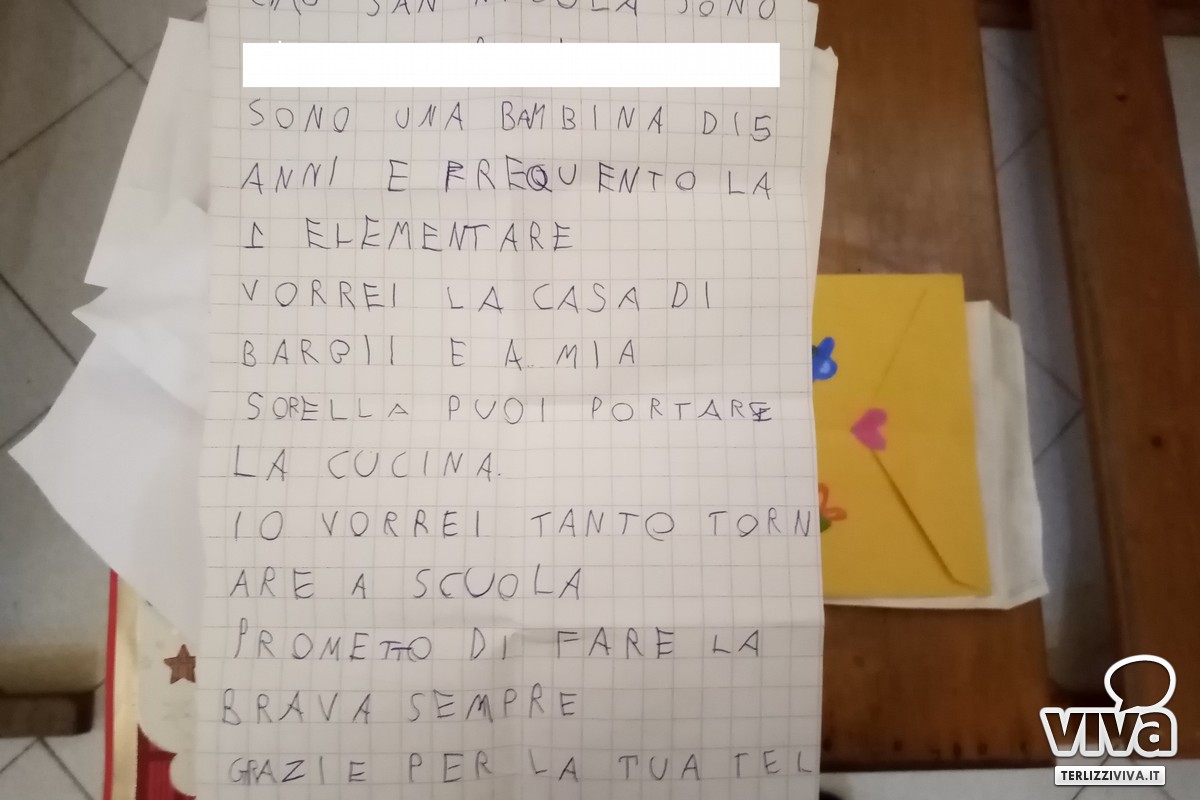 CIAO SAN NICOLA SONO
SONO UNA BAMBINA DI 5
ANNI E FREQUENTO LA
1 ELEMENTARE
VORREI LA CASA DI
BARBII E A MIA
SORELLA PUOI PORTARE
LA CUCINA.
IO VORREI TANTO TORN
ARE A SCUOLA
PROMETTO DI FARE LA
BRAVA SEMPRE
GRAZIE PER LA TUA TEL
viva
TERLIZZIVIVA.IT